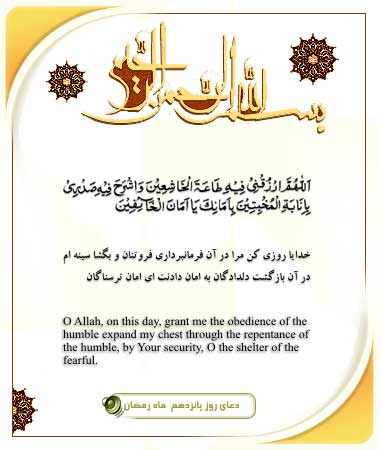 بسم الله الرحمن الرحیم
اَللّٰهُمَّ ارْزُقْنی فیهِ طاعَةَ الْخاشِعینَ وَاشْرَحْ فیهِ صَدْری
بِاِنابَةِ الْمُخْبِتینَ بِاَمانِکَ یا اَمانَ الْخآئِفینَ
خدایا روزی کن مرا در آن فرمانبرداری فروتنان و بگشا سینه ام
در آن بازگشت دلدادگان به امان دادنت ای امان ترسناکان
O Allah, on this day, grant me the obedience of the
humble expand my chest through the repentance of
the humble, by Your security, O the shelter of the
fearful.
دعای روز پانزدهم ماه رمضان